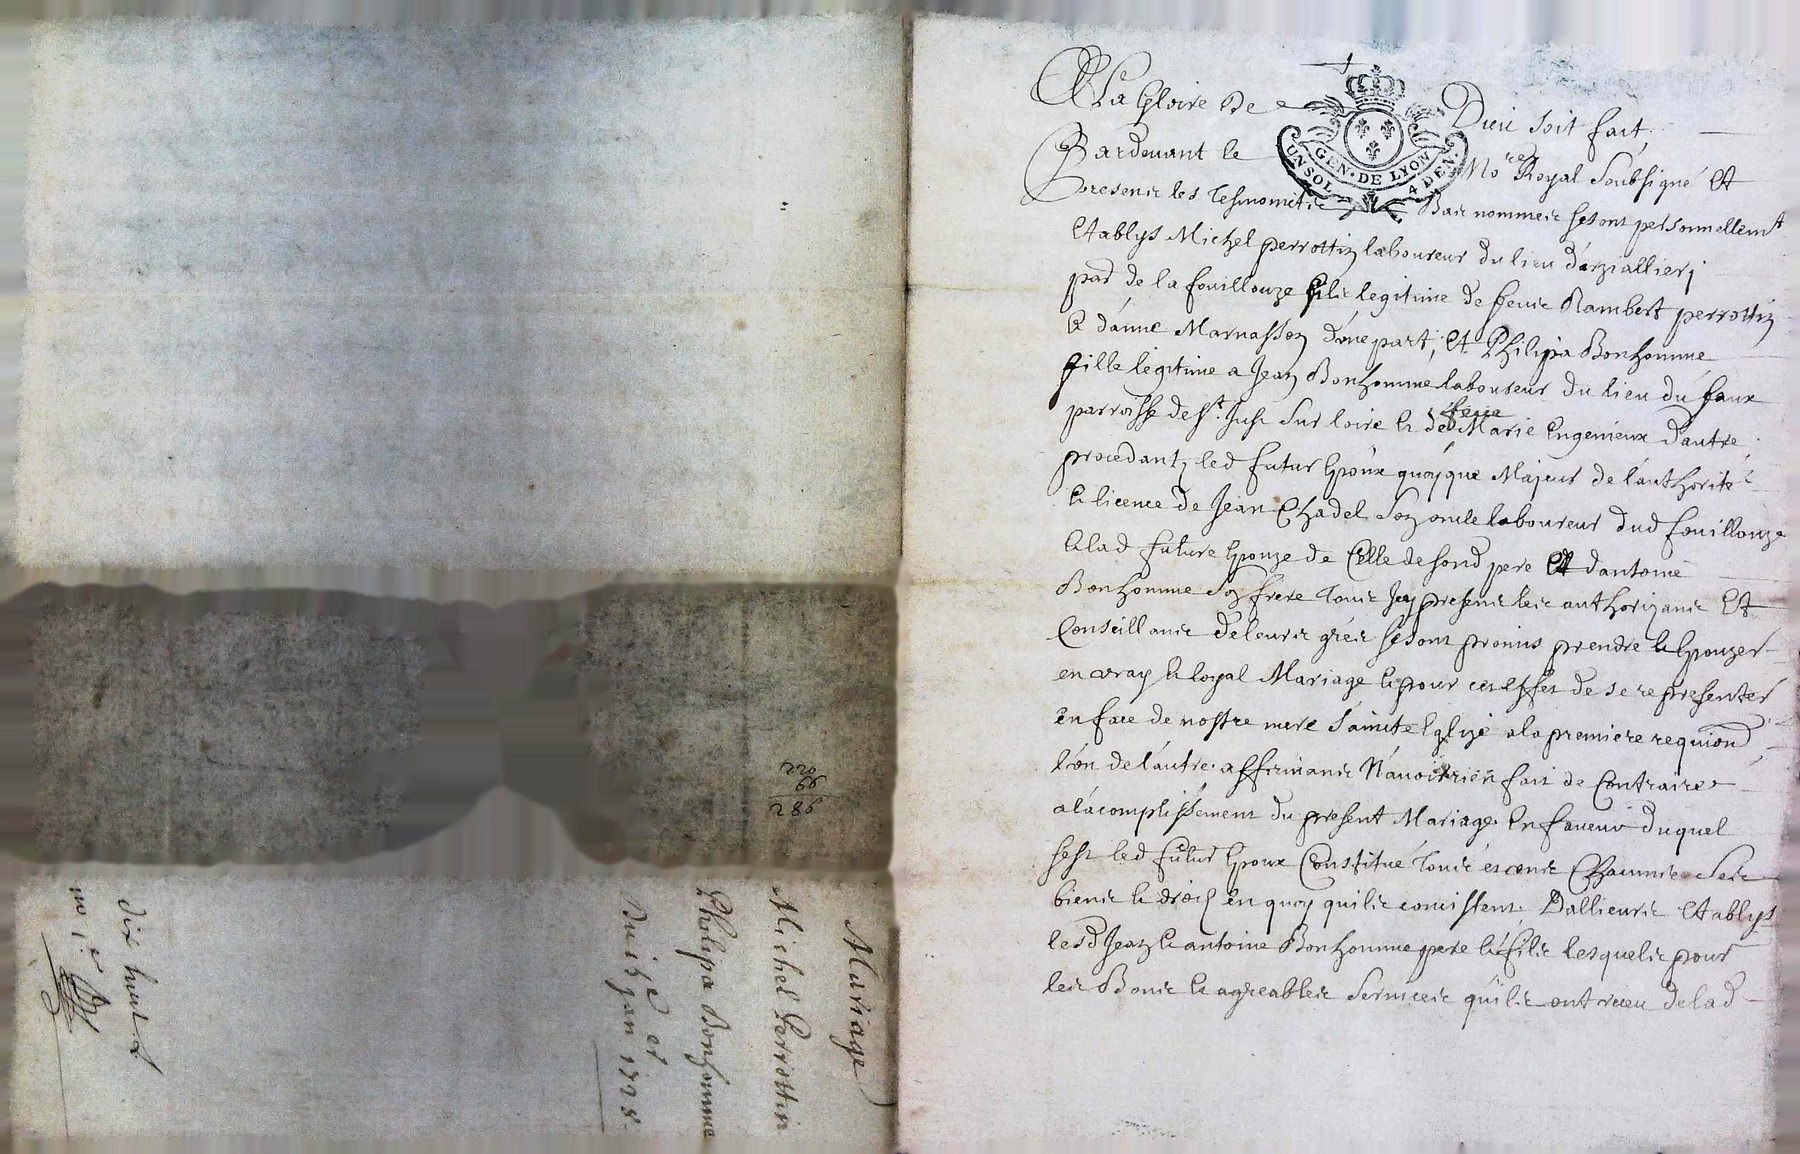 A La gloire De Dieu soit fait
Pardevant le No.re Royal Soubsigné Et
presens les tesmoints Bas nommes se sont personnellemt
Etablys Michel perrottin laboureur du lieu d'arziallier
par de la fouillouze fils legitime de feu Rambert perrottin
& d'anne Marnasson d'une part, Et Philipa Bonhomme
fille legitime a Jean Bonhomme laboureur du lieu du faux
parroisse de St. Just sur loire & de feue Marie Engenieux d'autre
procedant led futur Epoux quoyque Majeur de l'authorité
& licence de Jean Chadel son oncle laboureur dud fouillouze
& lad future Epouze de Celle de sond pere Et d'antoine
Bonhomme son frere tous icy presens les authorizans Et
Conseillans de leurs grés se sont promis prendre & Epouzer
en vray & loyal Mariage & pour ces effet de se representer
en face de nostre mere Sainte Eglize a la premiere requion
l'on de l'autre affirmans N'avoir rien fait de Contraire
a l'acomplissement du present Mariage En faveur duquel
sest led futur Epoux Constitué tous es cens Chacuns ses
biens & droits en quoy quils concistent D'allieurs Etablys
lesd Jean & antoine Bonhomme pere & fils lesquels pour
les Bons & agreables services quils ont receu de lad
220
66
286
Mariage
Michel Perrottin
Philipa Bonhomme
Du 15e
jan 1728
dix huit